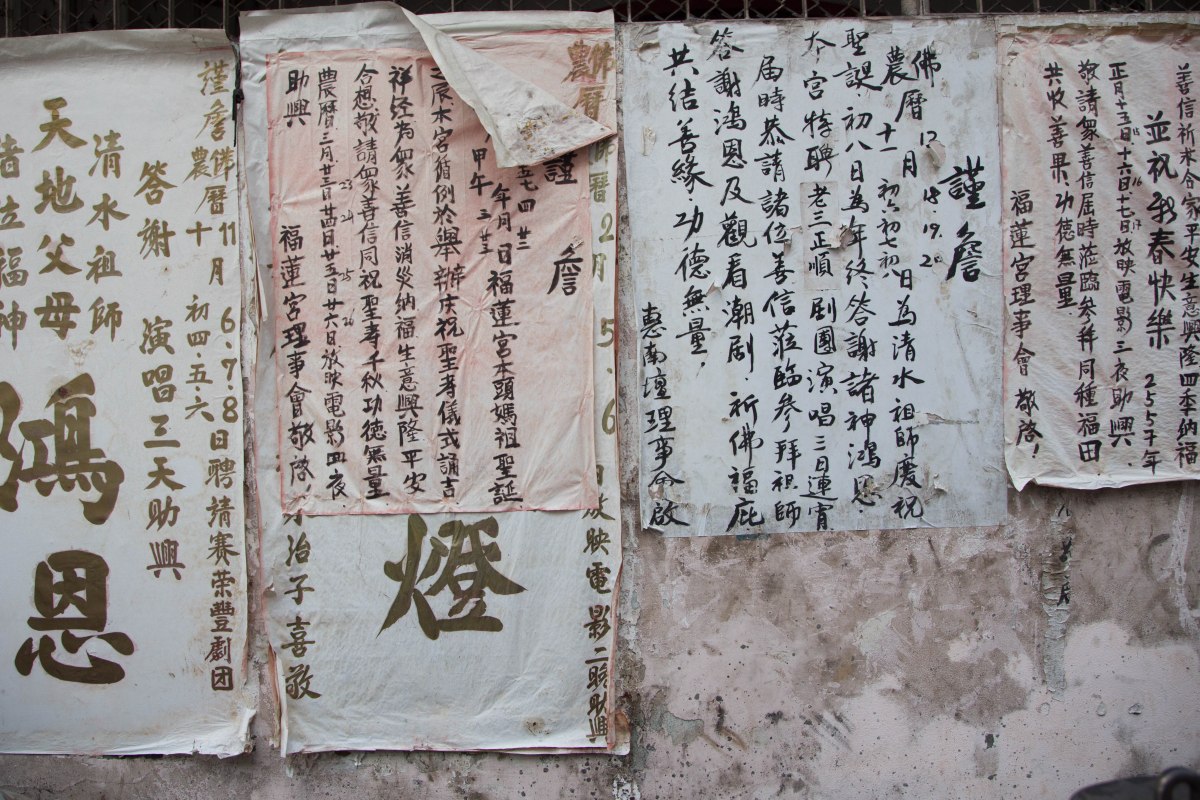 善信祈禾合家平安生意興隆四季納福
並祝新春快樂
正月十五日十六日.十七日放映電影三夜助興.
敬請衆善信屆時涖臨參拜同種福田
共收善果.功德無量
福蓮宮理事會 敬啓!
謹詹
佛曆 12月 18.19.20
農曆 十一月 初六初七初八日為清水祖師慶祝
聖誕.初八日為年終答謝諸神鴻恩.
本宮特聘 老三正順 劇團演唱三日連宵
届時恭請諸位善信蒞臨參拜祖師
答謝鴻恩及觀看潮劇.祈佛福庇
共結善緣.功德無量,
惠南壇理事會啟
佛曆2月5.6日放映電影二晚助興
農曆
謹詹
年月日福蓮宮本頭媽祖聖誕
甲午三廿三
之辰本宮循例於舉辦庆祝聖壽儀式誦吉
祥经為衆善信消災納福生意興隆平安
合想敬請衆善信同祝聖寿千秋功德無量
農曆三月廿三日廿四日廿五日廿六日放映電影四夜
23 24 25 26
助興
福蓮宮理事會敬啓
燈
治子喜敬
謹詹
佛曆11月6.7.8日聘請賽荣豐劇团
農曆十月初四.五.六
答謝 演唱三天助興
清水祖師
天地父母
諸位福神
鴻恩